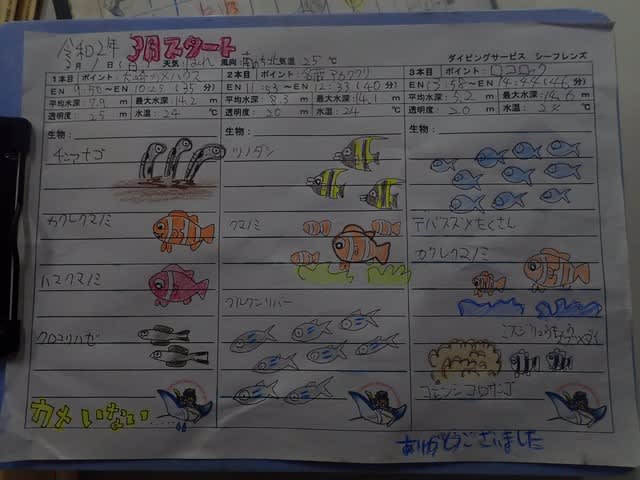 令和2年 3月スタート
3月1日(日) 天気 はれ 風向 南のち北 気温 25℃ ダイビングサービス シーフレンズ
1本目 ポイント: 大崎カメハウス
EN 9:50〜EN 10:25 (35分)
平均水深: 7.9 m 最大水深: 14.2 m
透明度: 25 m 水温: 24 ℃
生物:
チンアナゴ
カクレクマノミ
ハマクマノミ
クロユリハゼ
カメいない....
2本目 ポイント: 名蔵アカククリ
EN 11:53〜EN 12:33 (40分)
平均水深: 8.3 m 最大水深: 14.1 m
透明度: 20 m 水温: 24 ℃
生物:
ツノダシ
クマノミ
ウルクンリバー
3本目 ポイント: ロコロック
EN 13:58〜EN 14:44 (46分)
平均水深: 5.2 m 最大水深: 14.6 m
透明度: 20 m 水温: 24 ℃
生物:
デバスズメたくさん
カクレクマノミ
コモンシコロサンゴ
ありがとうございました